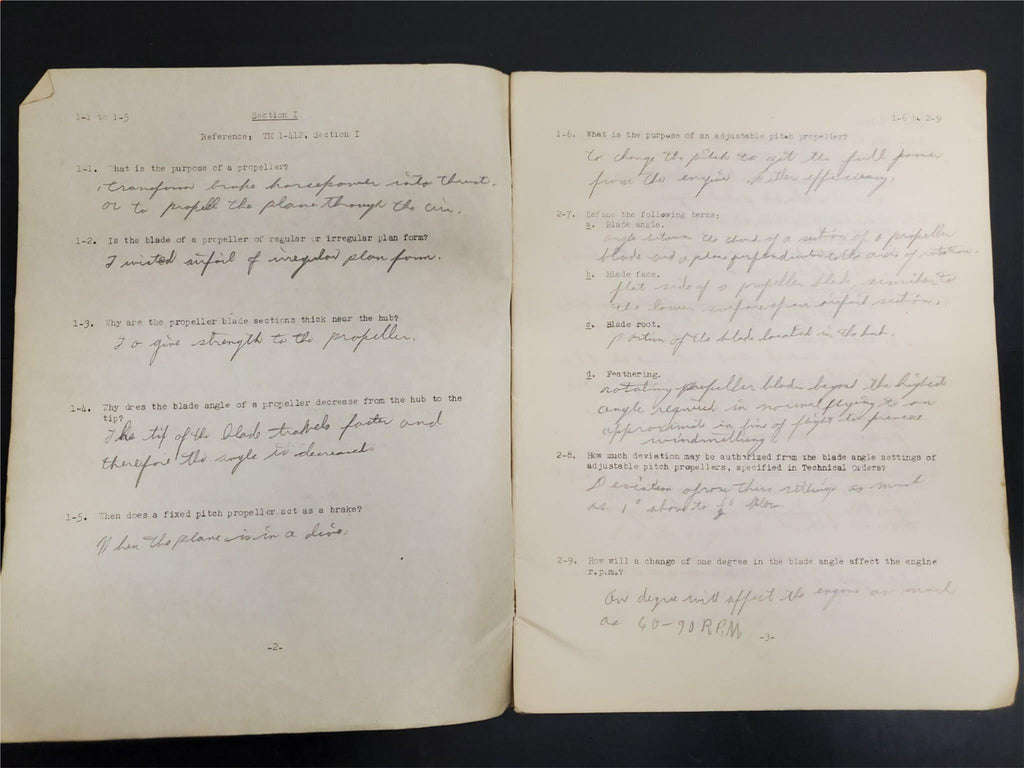 1-1 to 1-5
Section I
Reference: TM 1-412, Section I
1-1. What is the purpose of a propeller?
transform brake horsepower into thrust,
or to propell the plane through the air.
1-2. Is the blade of a propeller of regular or irregular plan form?
Twisted airfoil of irregular plan form.
1-3. Why are the propeller blade sections thick near the hub?
To give strength to the propeller.
1-4. Why does the blade angle of a propeller decrease from the hub to the
tip?
The tip of the blade travels faster and
therefore the angle is decreased.
1-5. When does a fixed pitch propeller act as a brake?
When the plane is in a dive.
-2-
1-6 to 2-9
1-6. What is the purpose of an adjustable pitch propeller?
to change the pitch to get the full power
from the engine. efficiency.
2-7. Define the following terms:
a. Blade angle.
angle between the chord of a section of a propeller
blade and a plane perpendicular to the axis of rotation.
b. Blade face.
flat side of a propeller blade, similar to
the lower surface of an airfoil section.
c. Blade root.
portion of the blade located in the hub.
d. Feathering.
rotating propeller blade beyond the highest
angle required in normal flying to an
approximate in line of flight to
windmilling.
2-8. How much deviation may be authorized from the blade angle settings of
adjustable pitch propellers, specified in Technical Orders?
Deviation from settings as much
as 1° above to below
2-9. How will a change of one degree in the blade angle affect the engine
r.p.m.?
One degree will affect the engine as much
as 60-90 R.P.M
-3-